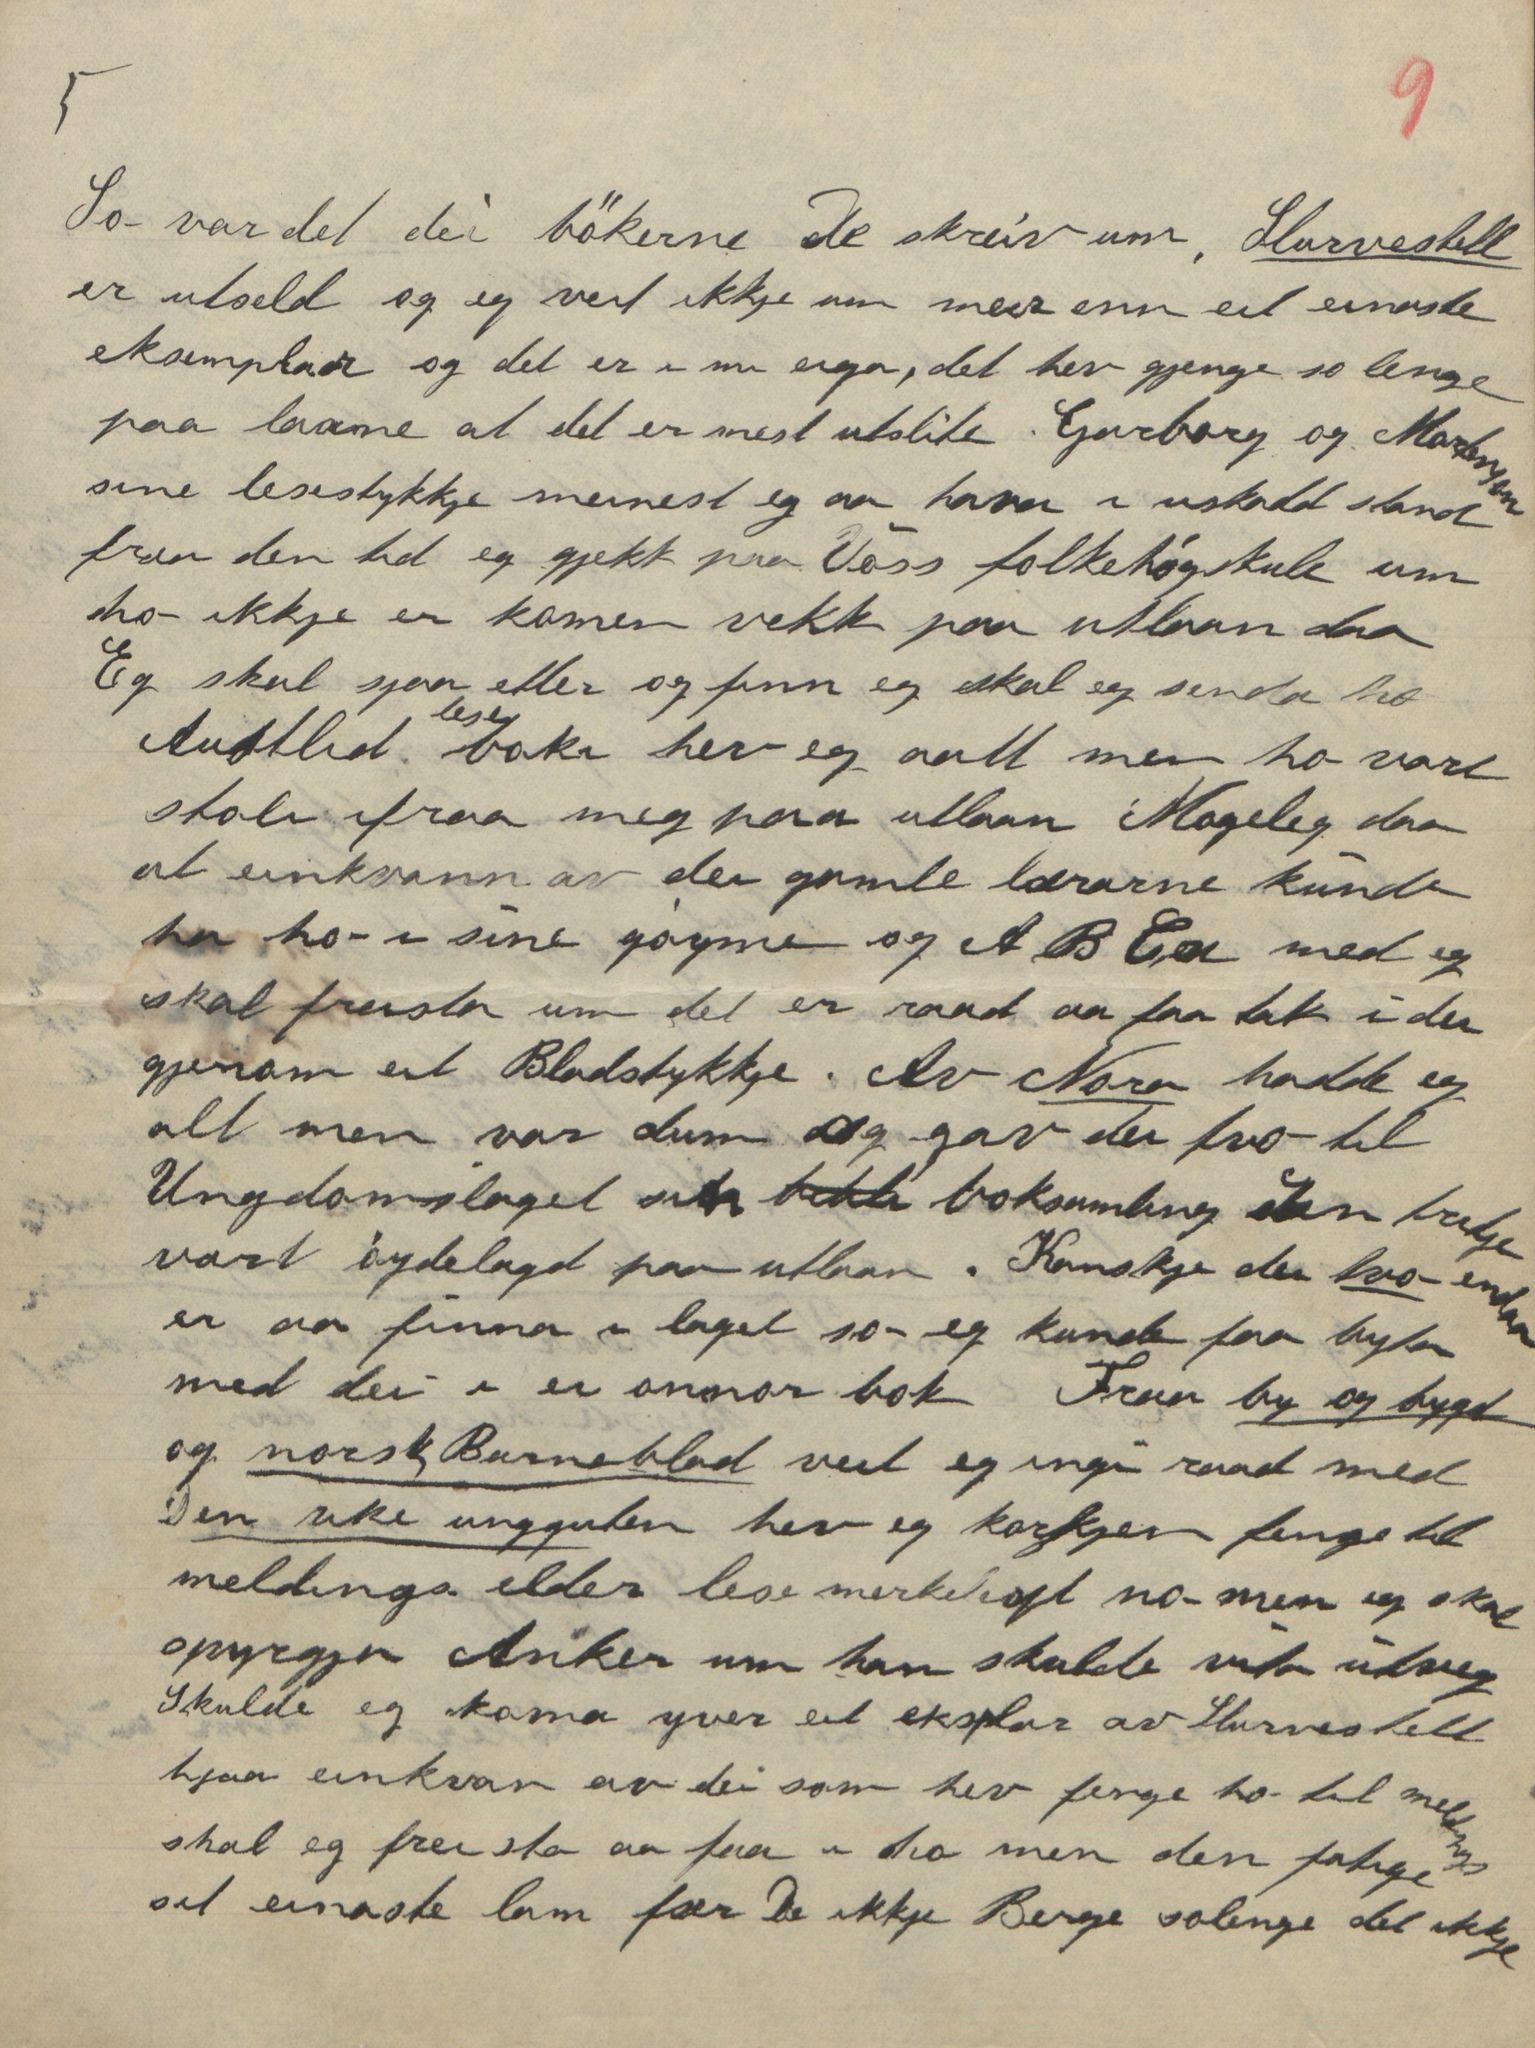 5
9
So var det dei bökerne De skreiv um, Sturvestell
er utseld og eg veit ikkje um meir enn eit einaste
eksemplar og det er i mi eiga, det hev gjenge so lenge
paa laane at det er mest utslite. Garborg og Mortenson
sine lesestykkje meinest eg aa hava i uskadd stand
fraa den tid eg gjekk paa Voss folkehögskule um
ho ikkje er komen vekk paa utlaan daa
Eg skal sjaa etter og finn eg skal eg senda ho
Austlid leseboki hev eg aatt men ho vart
stoli ifraa meg paa utlaan Mogeleg daa
at einkvann av dei gamle lærarne kunde
ha ho i sine göyme og A B Ca med eg
skal freista um det er raad aa faa tak i dei
gjenom eit Bladstykkje. Av Nora hadde eg
alt men var dum og gav dei tvo til
Ungdomslaget si boksamling den tridje
vart öydelagd paa utlaan. Kanskje dei tvo endaa
er aa finna i laget so eg kunde faa byta
med dei i ei annor bok Fraa by og bygd
og norsk Barneblad veit eg ingi raad med
Den rike ungguten hev eg korkjen fenge til
meldings elder lese merkeleigt no men eg skal
spyrgja Anker um han skulde vita utveg
Skulde eg koma yver eit eksplar av Sturvestell
hjaa einkvan av dei som hev fenge ho til meldings
skal eg freista aa faa i ho men den fatige
sit einaste lam fær De ikkje Berge solenge det ikkje